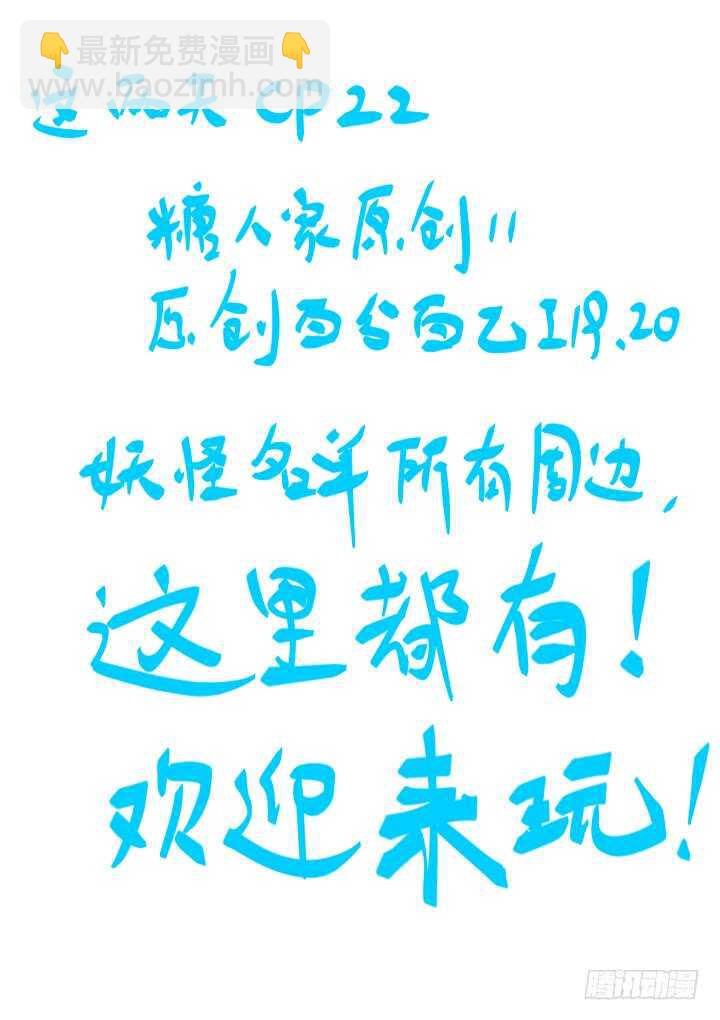 最新免费漫画
www.baozimh.com
这两天 CP22
糖人家原创11
原创百分百乙工19、20
妖怪名单所有周边,
这里都有!
欢迎来玩!
腾讯动漫